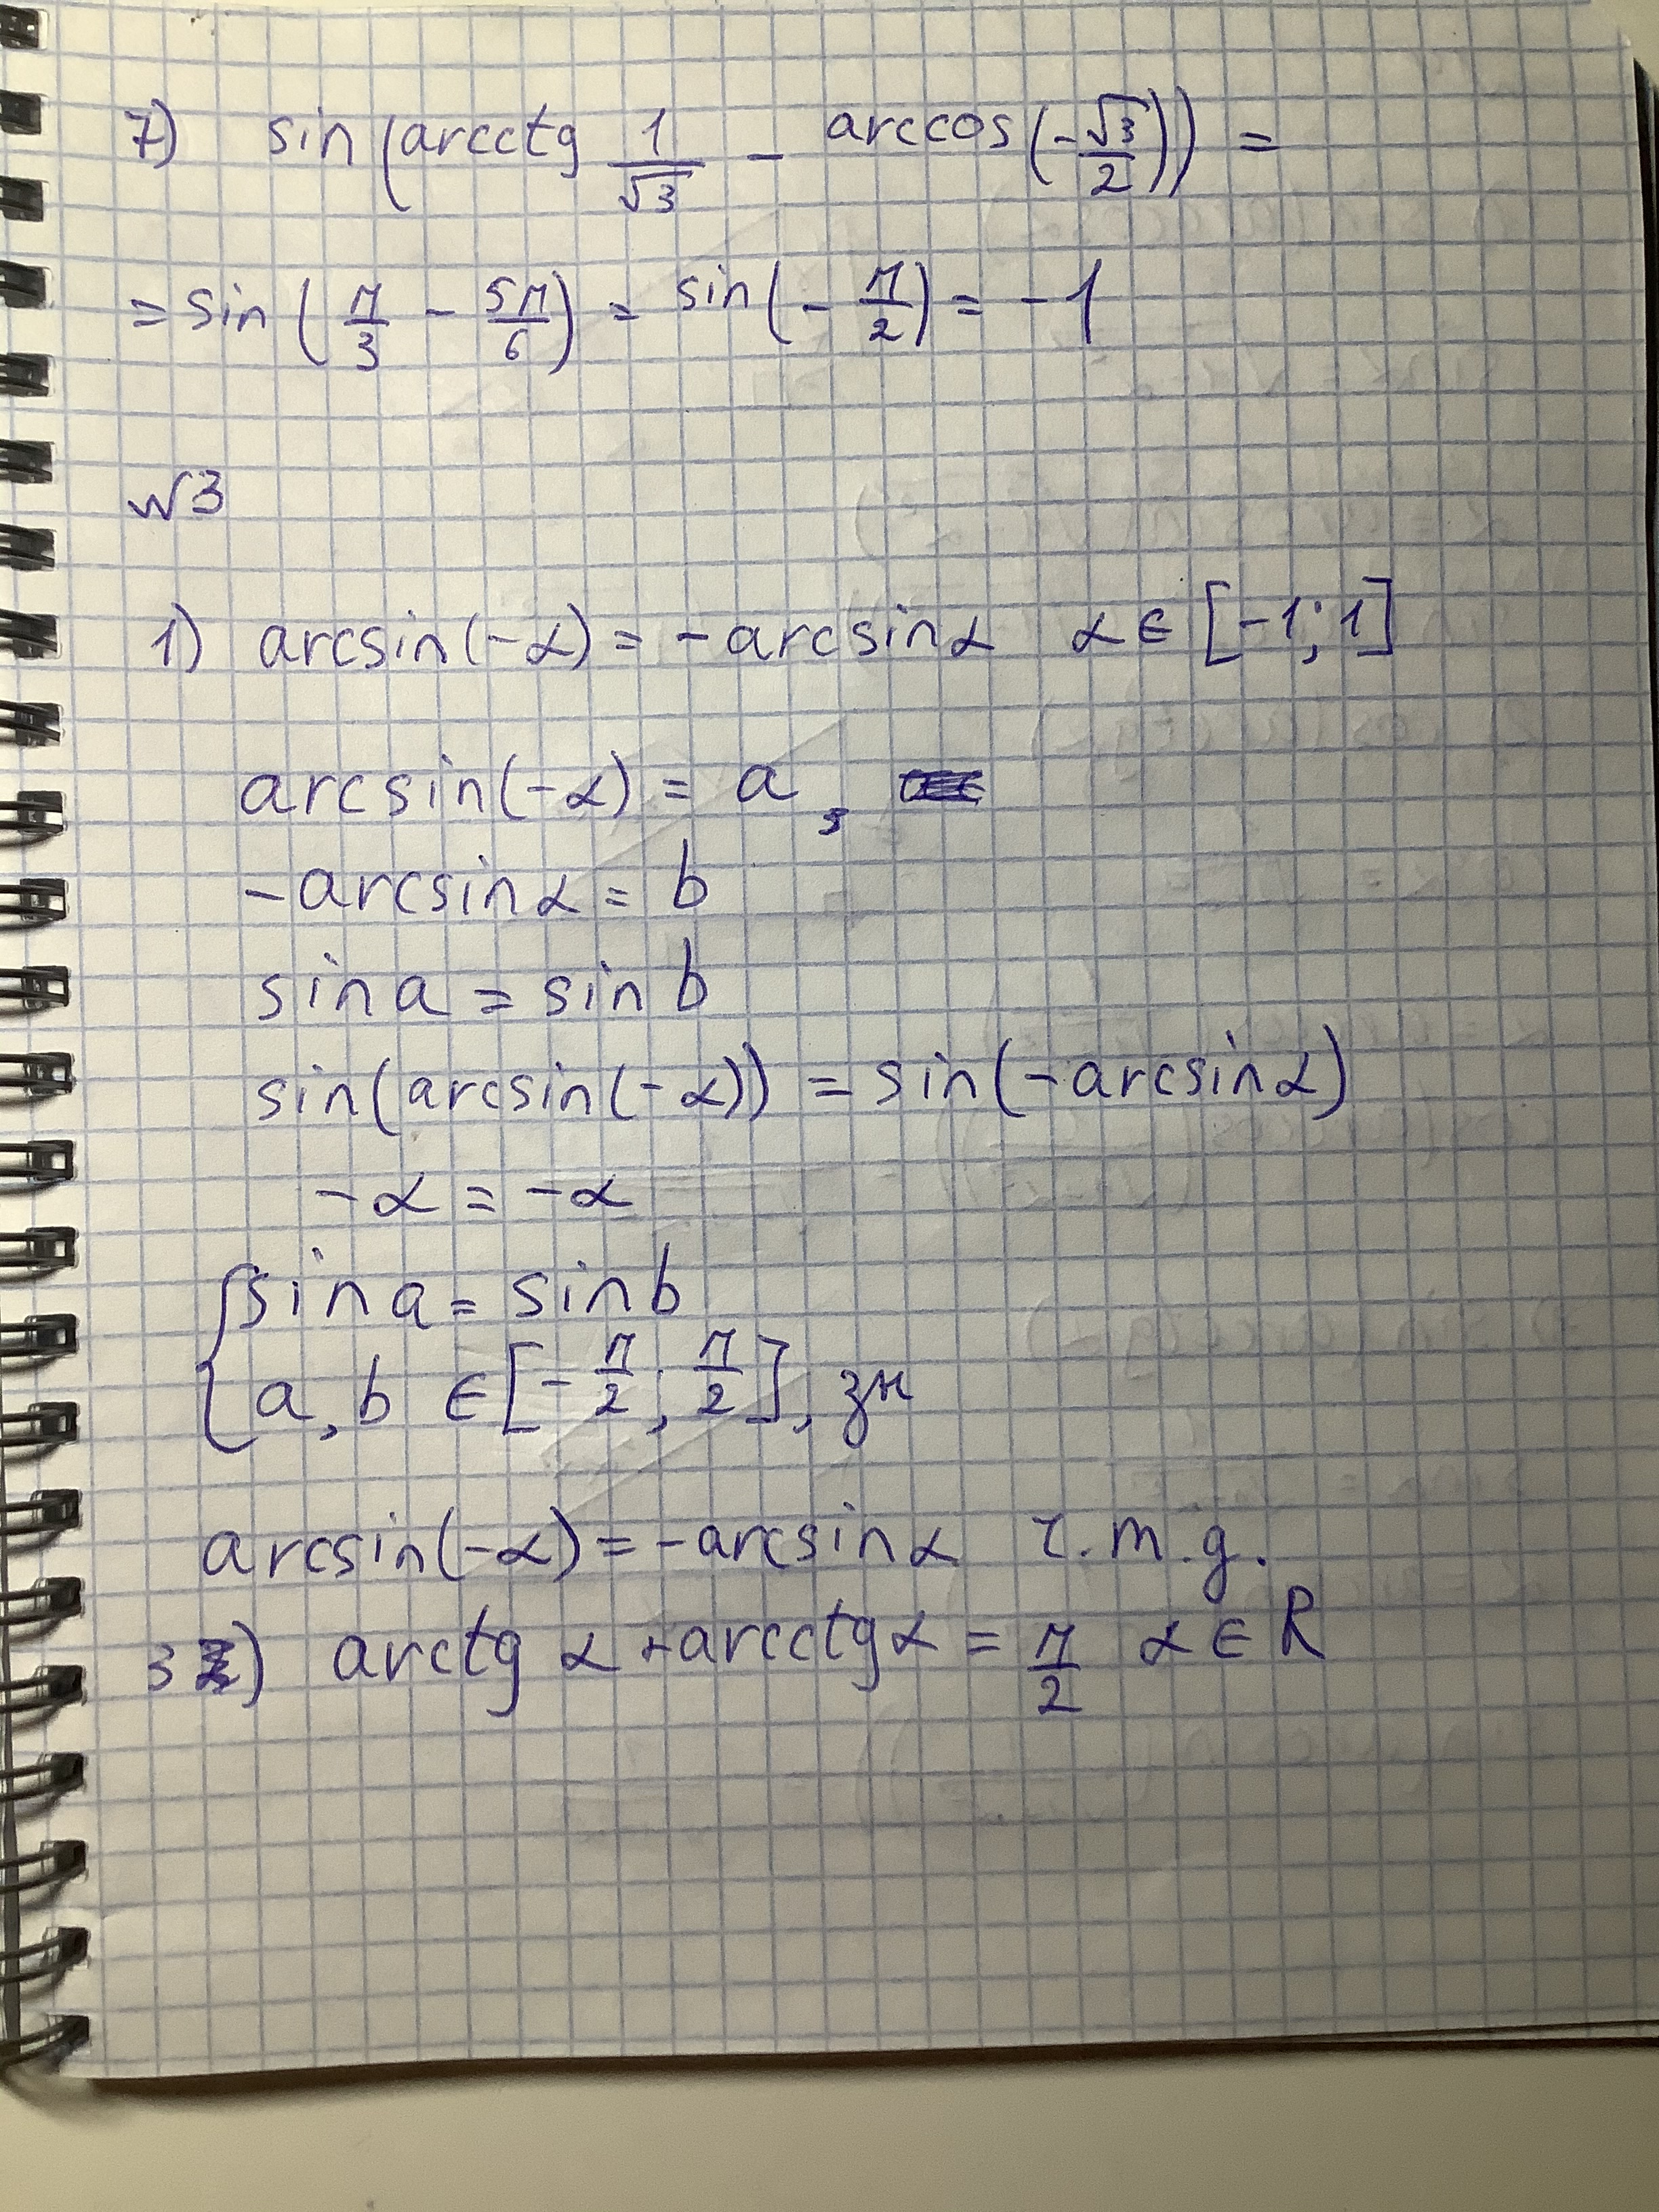 7) sin(arcctg 1/√3 - arccos(-√3/2)) =
= sin(π/3 - 5π/6) = sin(-π/2) = -1
№3
1) arcsin(-α) = -arcsinα α ∈ [-1; 1]
arcsin(-α) = a,
-arcsinα = b
sin a = sin b
sin(arcsin(-α)) = sin(-arcsinα)
-α = -α
{ sin a = sin b
a, b ∈ [-π/2; π/2], зн
arcsin(-α) = -arcsinα ч.т.д.
3) arctg α + arcctg α = π/2 α ∈ R